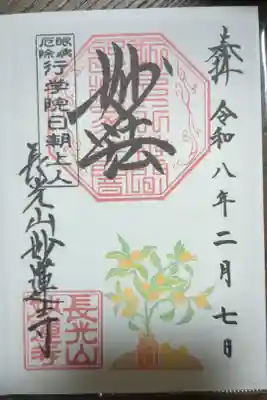 奉拝 令和八年二月七日
妙法
眼病
厄除
行学院日朝上人
長光山妙蓮寺
長光山
妙蓮寺